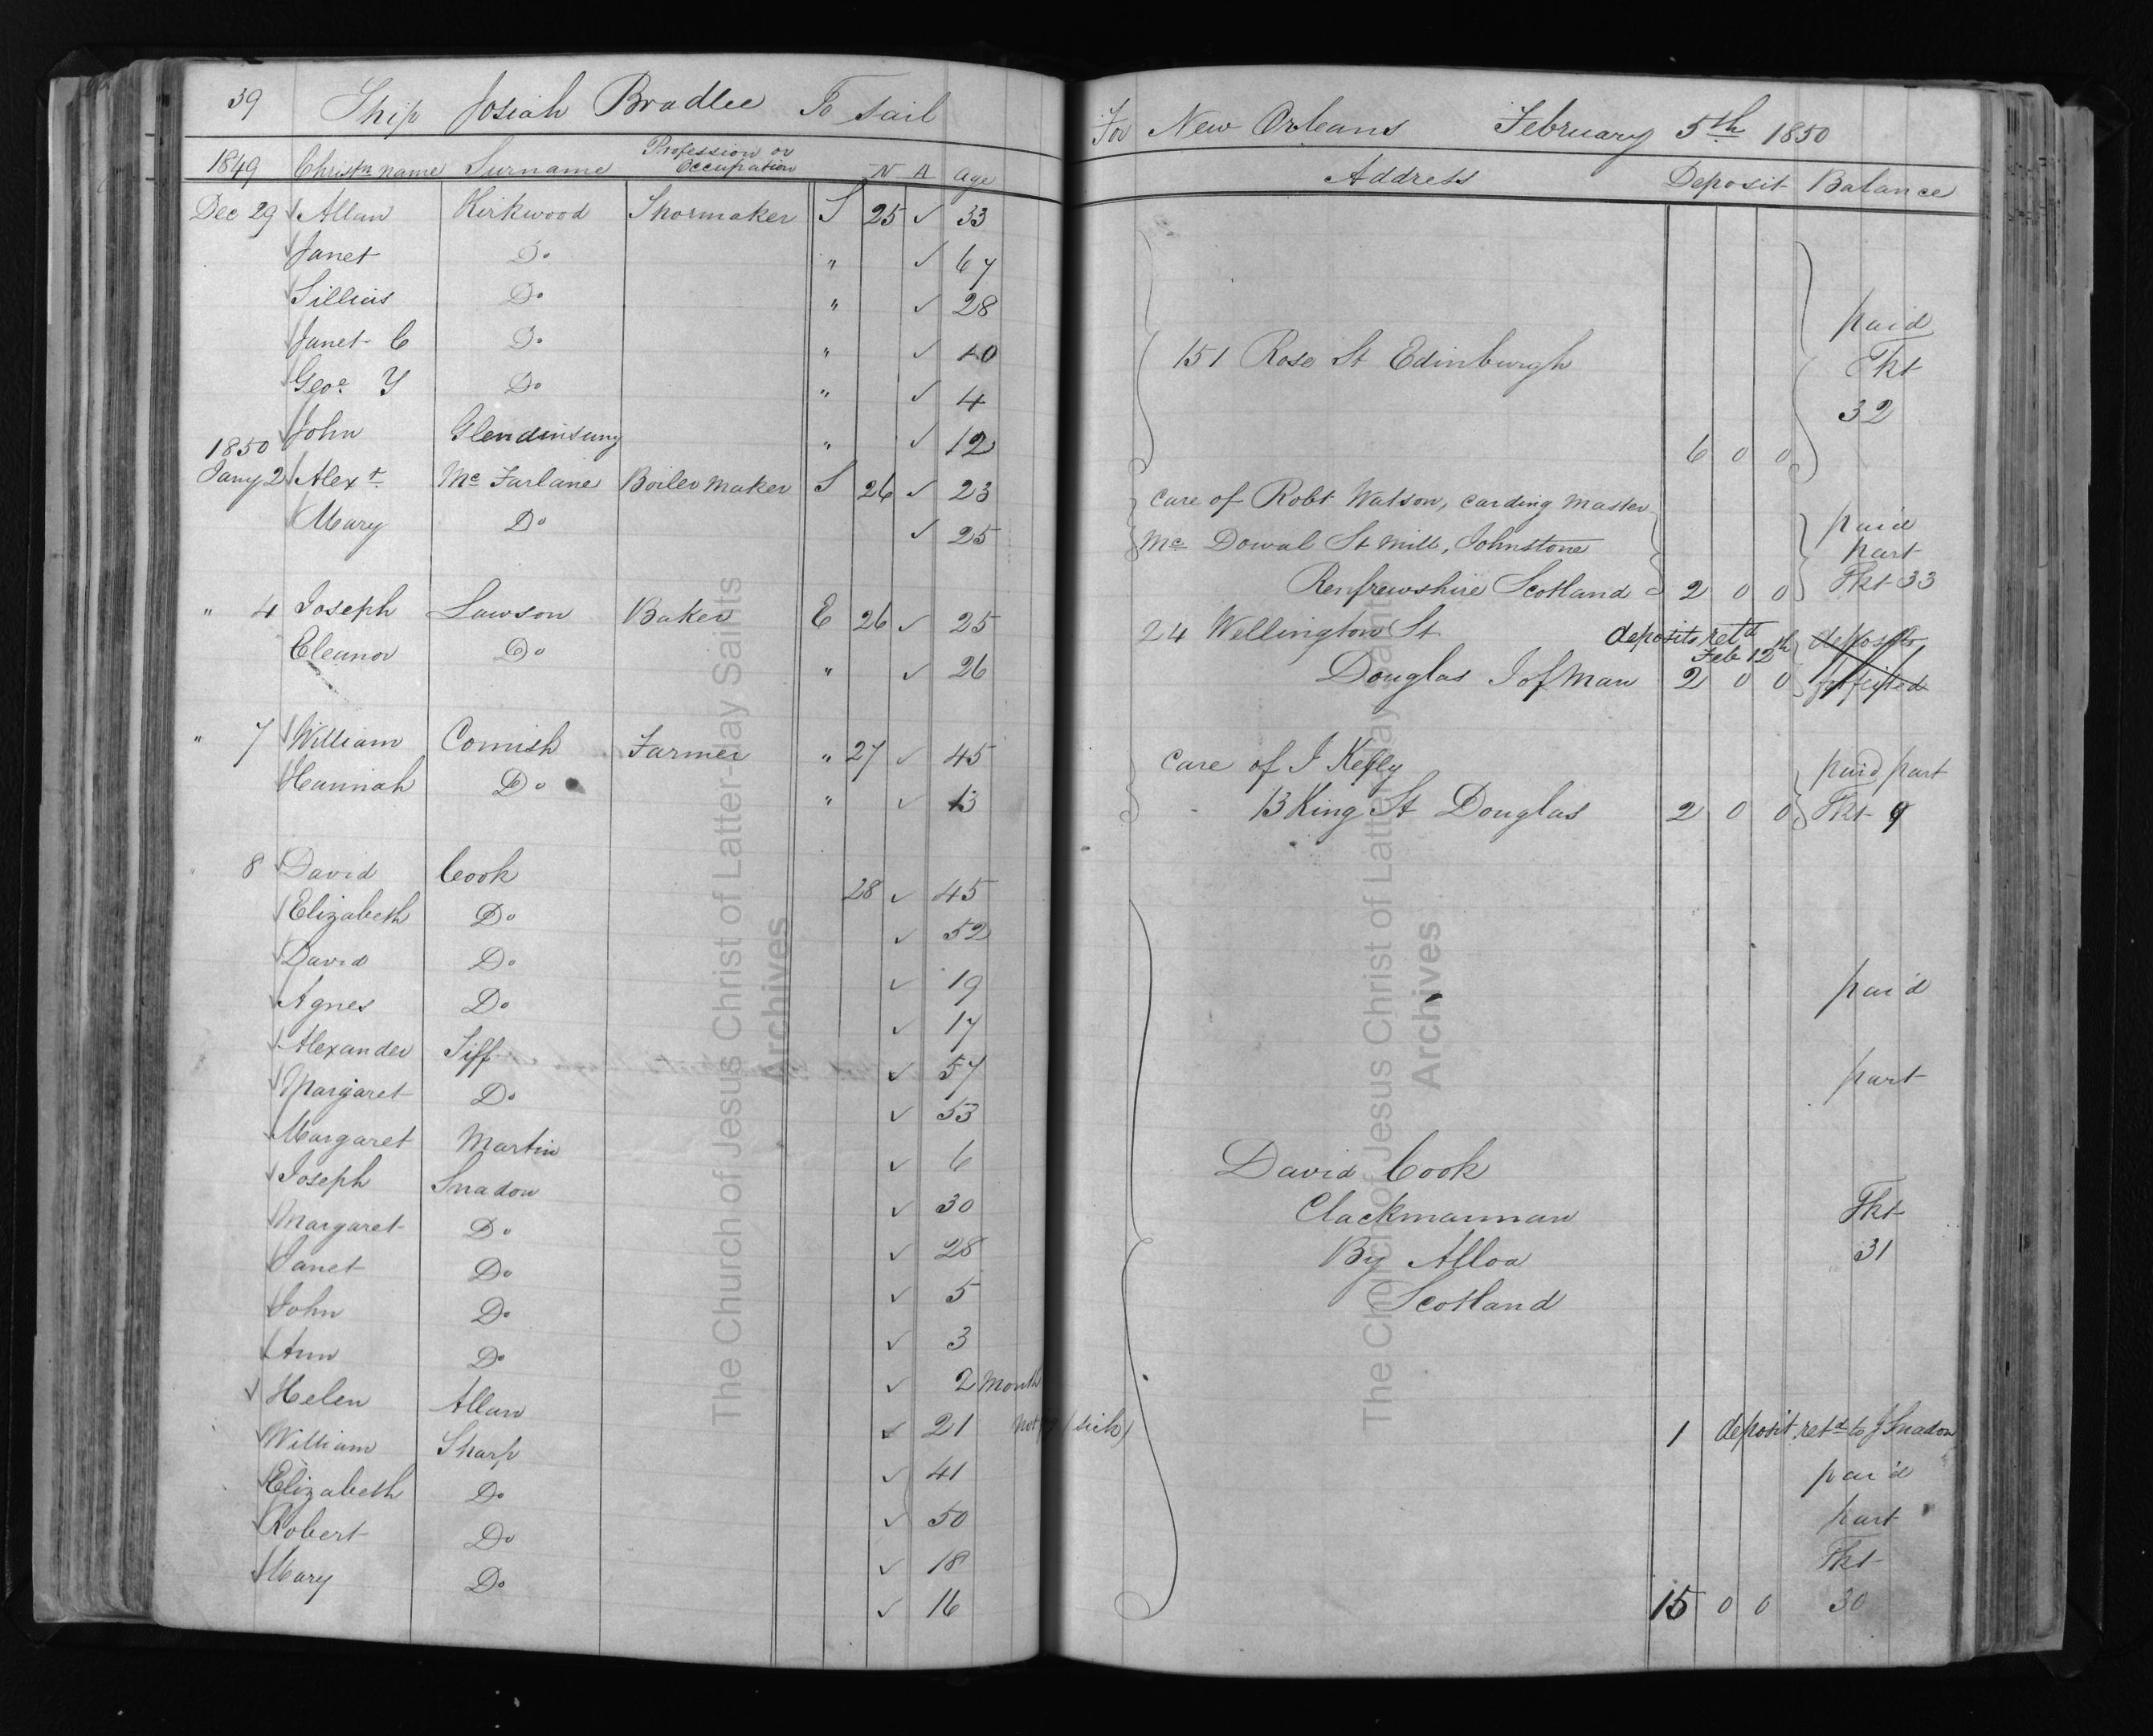 39 Ship Josiah Bradlee To sail
For New Orleans February 5th 1850
1849 Christn name Surname Profession or Occupation N A Age
Address Deposit Balance
Dec 29 Allan Kirkwood Shormaker S 25 ✓ 33
Janet Do " ✓ 67
Do " ✓ 28
Janet C Do " ✓ 10
Geoe Y Do " ✓ 4
John " ✓ 12
1850
Jany 2 Alext Mc Farlane Boiler maker S 26 ✓ 23
Mary Do ✓ 25
" 4 Joseph Lawson Baker E 26 ✓ 25
Eleanor Do " ✓ 26
" 7 William Cornish Farmer " 27 ✓ 45
Hannah Do " ✓ 13
" 8 David Cook 28 ✓ 45
Elizabeth Do ✓ 52
David Do ✓ 19
Agnes Do ✓ 17
Alexander ✓ 57
Margaret Do ✓ 53
Margaret Martin ✓ 6
Joseph Snadon ✓ 30
Margaret Do ✓ 28
Janet Do ✓ 5
John Do ✓ 3
Ann Do ✓ 2 month
Helen Allan ✓ 21 not (sick)
William Sharp ✓ 41
Elizabeth Do ✓ 50
Robert Do ✓ 18
Mary Do ✓ 16
paid
151 Rose St Edinburgh Tkt
32
6 0 0
care of Robt Watson, carding master
Mc Dowal St Mill, Johnstone paid part
Renfrewshire Scotland 2 0 0 Tkt 33
24 Wellington St deposits retd Feb 12th deposits
Douglas I of Man 2 0 0 forfeited
Care of J Kelly paid part
13 King St Douglas 2 0 0 Tkt 9
paid
part
David Cook
Clackmannan Tkt
By Alloa 31
Scotland
1 deposit retd to J Snadon
paid
part
Tkt
15 0 0 30
The Church of Jesus Christ of Latter-day Saints
Archives
The Church of Jesus Christ of Latter-day Saints
Archives